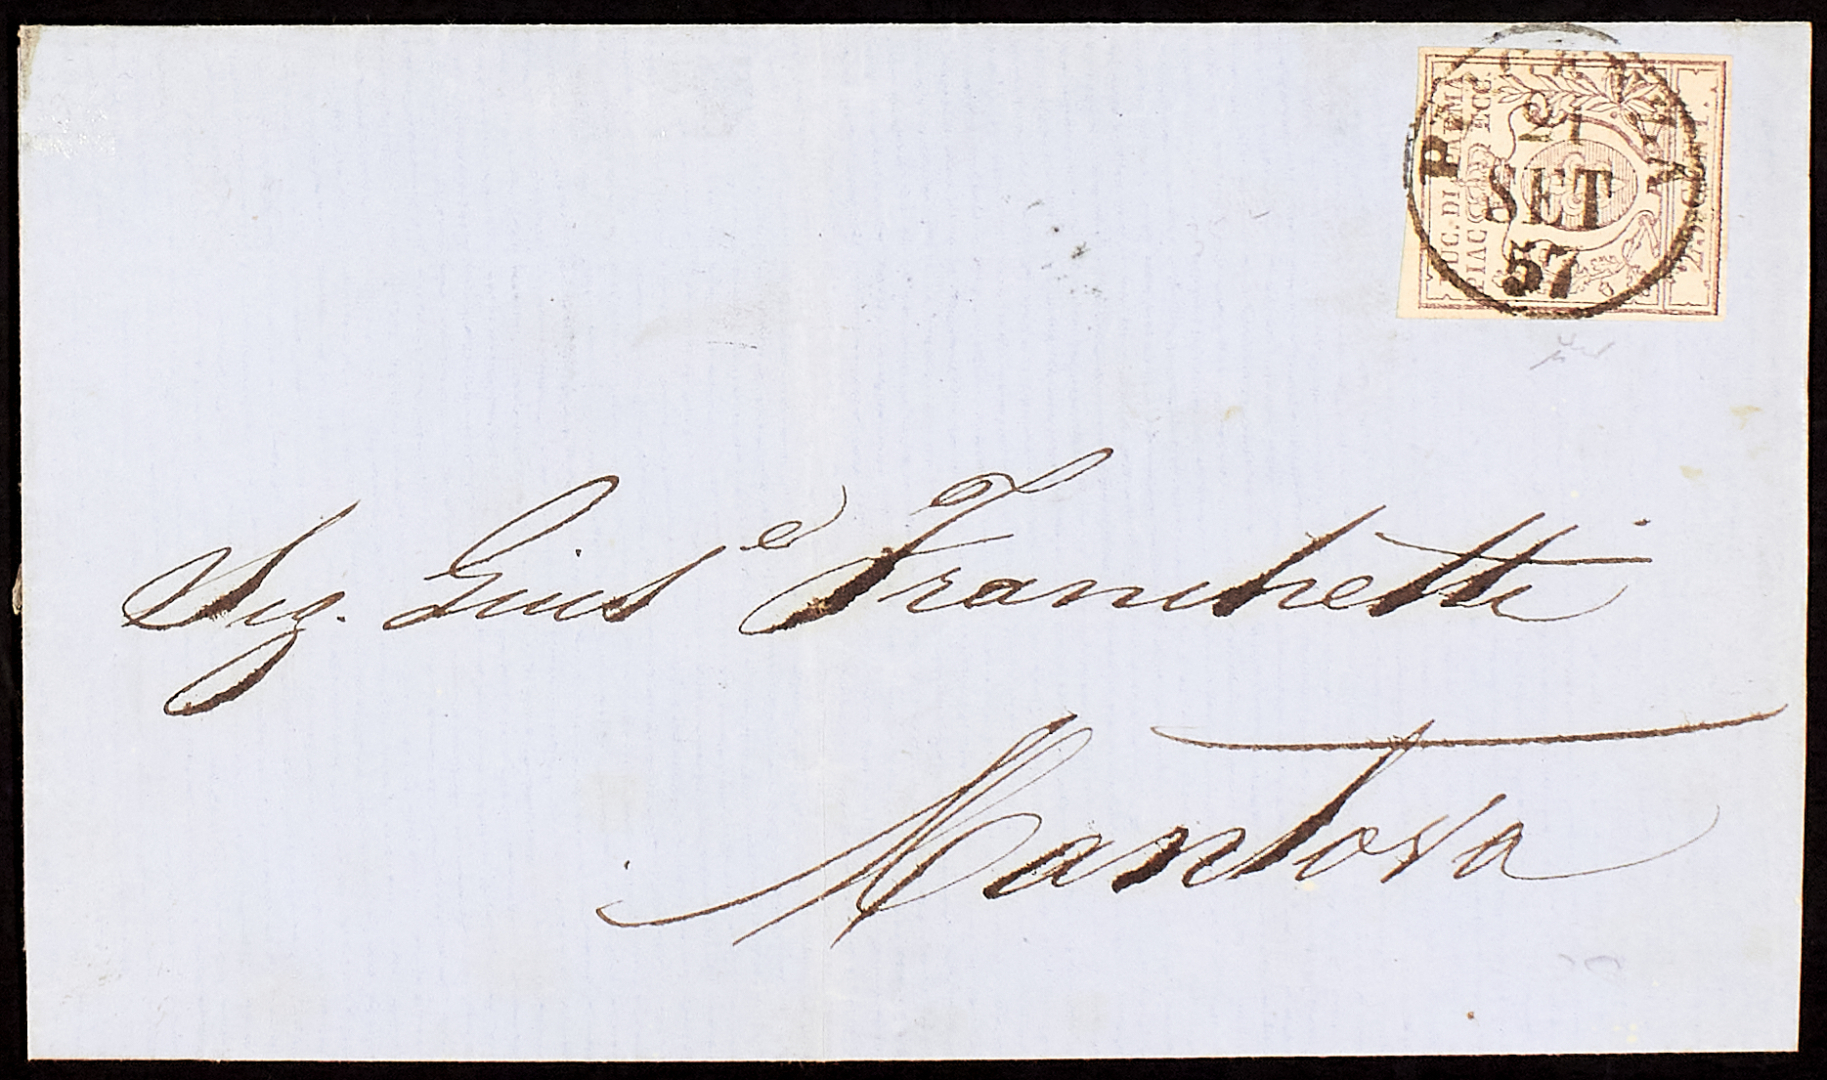 PIACENZA
21
SET
57
DUC. DI PARMA
PIAC. ECC.
Sig. Gius.e Franchetti
Mantova